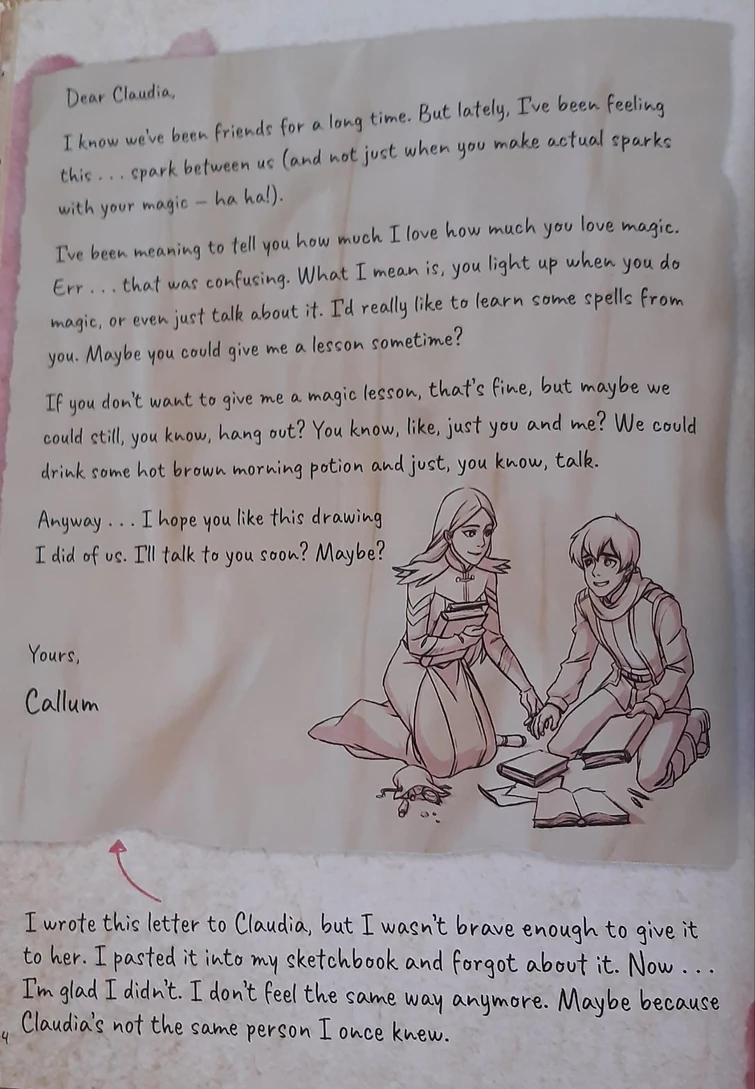 Dear Claudia,
I know we've been friends for a long time. But lately, I've been feeling
this . . . spark between us (and not just when you make actual sparks
with your magic – ha ha!).
I've been meaning to tell you how much I love how much you love magic.
Err . . . that was confusing. What I mean is, you light up when you do
magic, or even just talk about it. I'd really like to learn some spells from
you. Maybe you could give me a lesson sometime?
If you don't want to give me a magic lesson, that's fine, but maybe we
could still, you know, hang out? You know, like, just you and me? We could
drink some hot brown morning potion and just, you know, talk.
Anyway . . . I hope you like this drawing
I did of us. I'll talk to you soon? Maybe?
Yours,
Callum
I wrote this letter to Claudia, but I wasn't brave enough to give it
to her. I pasted it into my sketchbook and forgot about it. Now . . .
I'm glad I didn't. I don't feel the same way anymore. Maybe because
Claudia's not the same person I once knew.